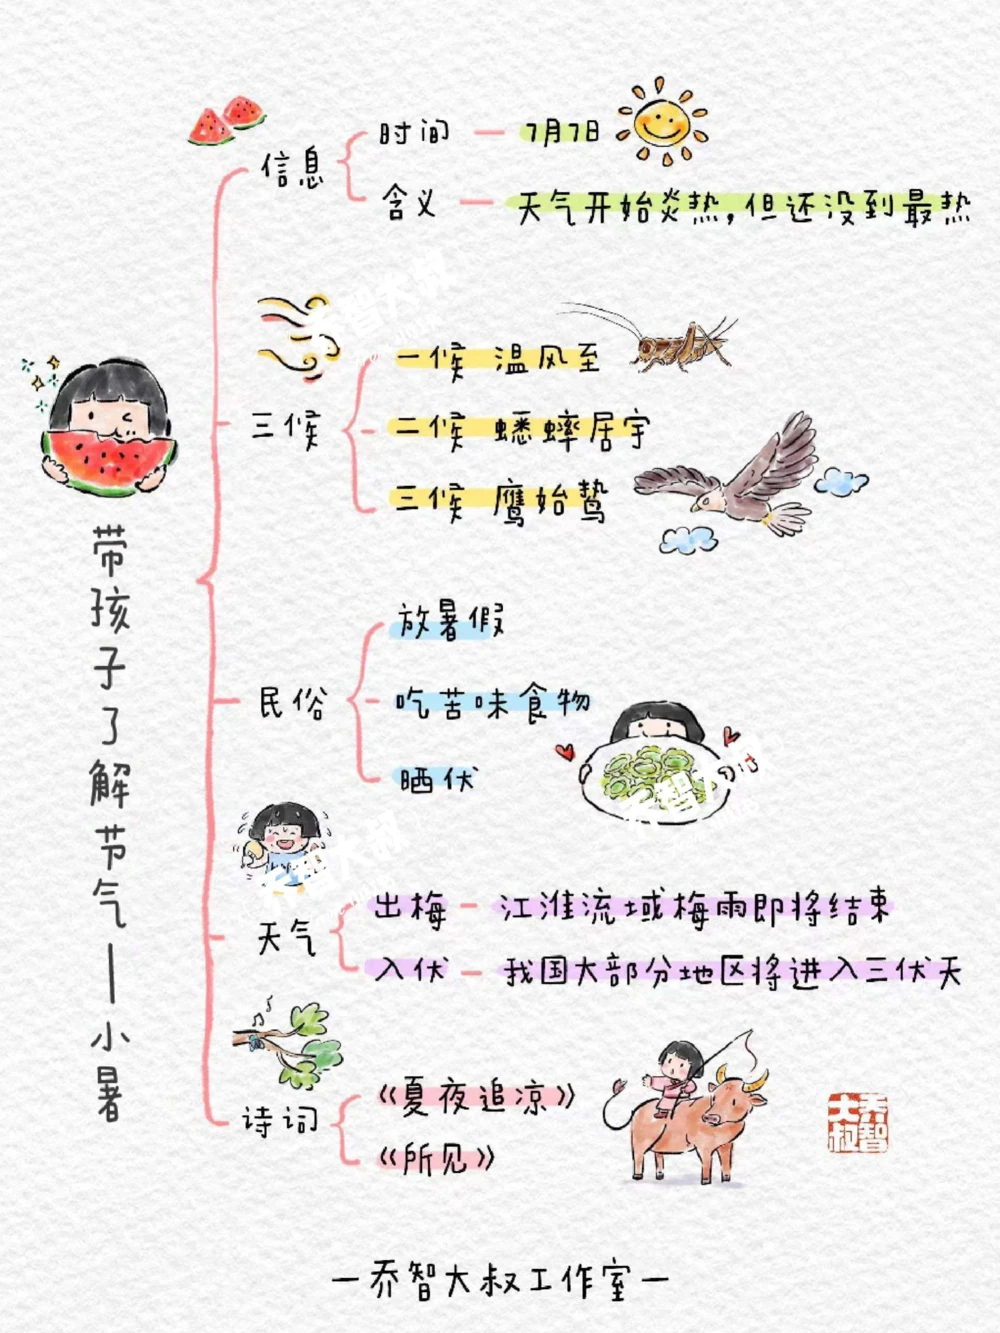 带孩子了解节气—小暑
信息
时间 — 7月7日
含义 — 天气开始炎热，但还没到最热
三候
一候 温风至
二候 蟋蟀居宇
三候 鹰始鸷
民俗
放暑假
吃苦味食物
晒伏
天气
出梅 — 江淮流域梅雨即将结束
入伏 — 我国大部分地区将进入三伏天
诗词
《夏夜追凉》
《所见》
乔智大叔
—乔智大叔工作室—
乔智大叔
乔智大叔
乔智大叔